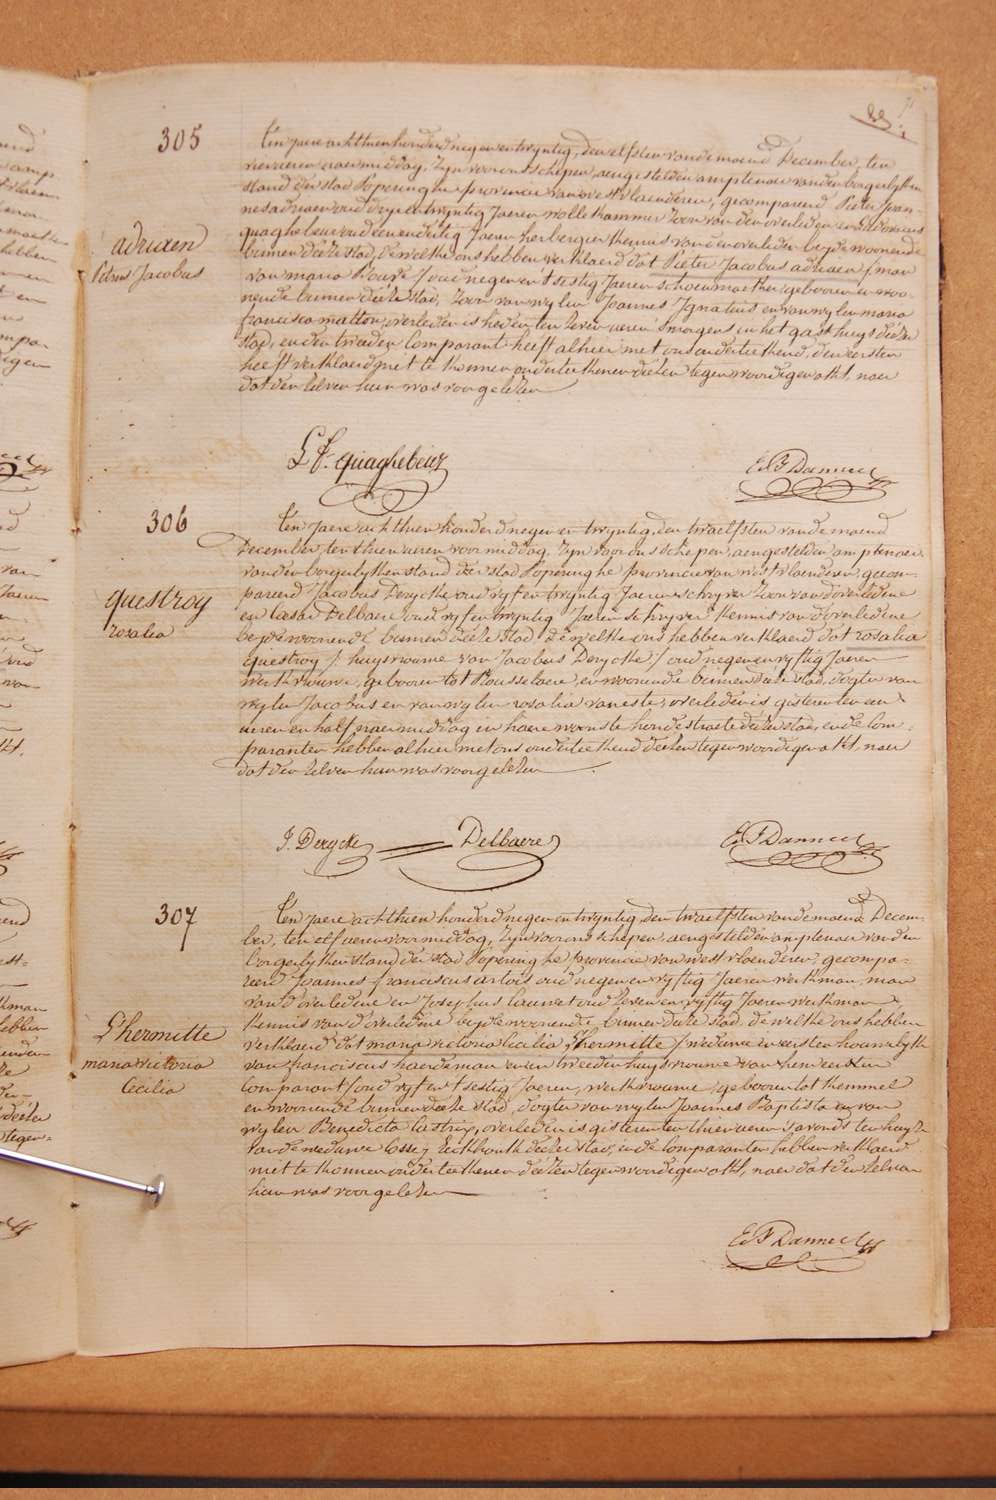 305
Ten jaere achthien honderd negen en twyntig, den elfsten van de maend December, ten
vier ueren naermiddag, zyn voor ons schepen, aengestelden amptenaer van den borgerlyken
stand der stad Poperinghe provincie van westvlaenderen, gecompareerd Pieter Joan-
nes adriaen oud dry en twyntig Jaeren wollekammer zoon van den overleden en
quaghebeur oud een en dertig Jaeren herbergier kennis van den overleden beyde woonende
binnen deeze stad, de welke ons hebben verklaerd dat Pieter Jacobus adriaen / man
van maria / oud negen en t'sestig Jaeren schoenmaeker, gebooren en woo-
nende binnen deeze stad, zoon van wylen Joannes Ignatius en van wylen maria
francisca matton, overleden is heden ten zeven ueren s'morgens in het gasthuys deezer
stad, en den tweeden Comparant heeft alhier met ons onderteekend, den eersten
heeft verklaerd niet te konnen onderteekenen deezen tegenwoordigen akt, naer
dat den zelven hun was voorgelezen
adriaen
Petrus Jacobus
L F. quaghebeur
E F Danneel
306
Ten jaere achthien honderd negen en twyntig, den twaelfsten van de maend
December, ten thien ueren voormiddag, zyn voor ons schepen, aengestelden amptenaer
van den borgerlyken stand der stad Poperinghe provincie van westvlaenderen, gecom-
pareerd Jacobus Derycke oud vyf en twyntig Jaeren schryver zoon van d'overledene
en Caesar Delbaere oud vyf en twyntig Jaeren schryver kennis van d'overledene
beyde woonende binnen deeze stad, de welke ons hebben verklaerd dat rosalia
questroy / huysvrouwe van Jacobus Derycke / oud negen en vyftig Jaeren
werkvrouwe, gebooren tot Rousselaere, en woonende binnen deeze stad, dogter van
wylen Jacobus en van wylen rosalia vaneste, overleden is gisteren ten een
ueren en half naermiddag in haere woonste hondestraete deezer stad, en de Com-
paranten hebben alhier met ons onderteekend deezen tegenwoordigen akt, naer
dat den zelven hun was voorgelezen
questroy
rosalia
J. Derycke
Delbaere
E F Danneel
307
Ten jaere achthien honderd negen en twyntig, den twaelfsten van de maend Decem-
ber, ten elf ueren voormiddag, zyn voor ons schepen, aengestelden amptenaer van den
borgerlyken stand der stad Poperinghe provincie van westvlaenderen, gecompa-
reerd Joannes franciscus artois oud negen en vyftig Jaeren werkman, man
van d'overledene en Josephus oud zeven en vyftig Jaeren werkman
kennis van d'overledene beyde woonende binnen deeze stad, de welke ons hebben
verklaerd dat maria victoria Cecilia L'hermitte / weduwe in eersten houwelyk
van franciscus haerdeman en in tweeden huysvrouwe van den eersten
Comparant / oud vyf en t'sestig Jaeren, werkvrouwe, gebooren tot kemmel
en woonende binnen deeze stad, dogter van wylen Joannes Baptista en van
wylen Benedicta Castrix, overleden is gisteren ten thien ueren s'avonds ten huyze
van de weduwe deezer stad, en de Comparanten hebben verklaerd
niet te konnen onderteekenen deezen tegenwoordigen akt, naer dat den zelven
hun was voorgelezen
L'hermitte
maria victoria
Cecilia
E F Danneel